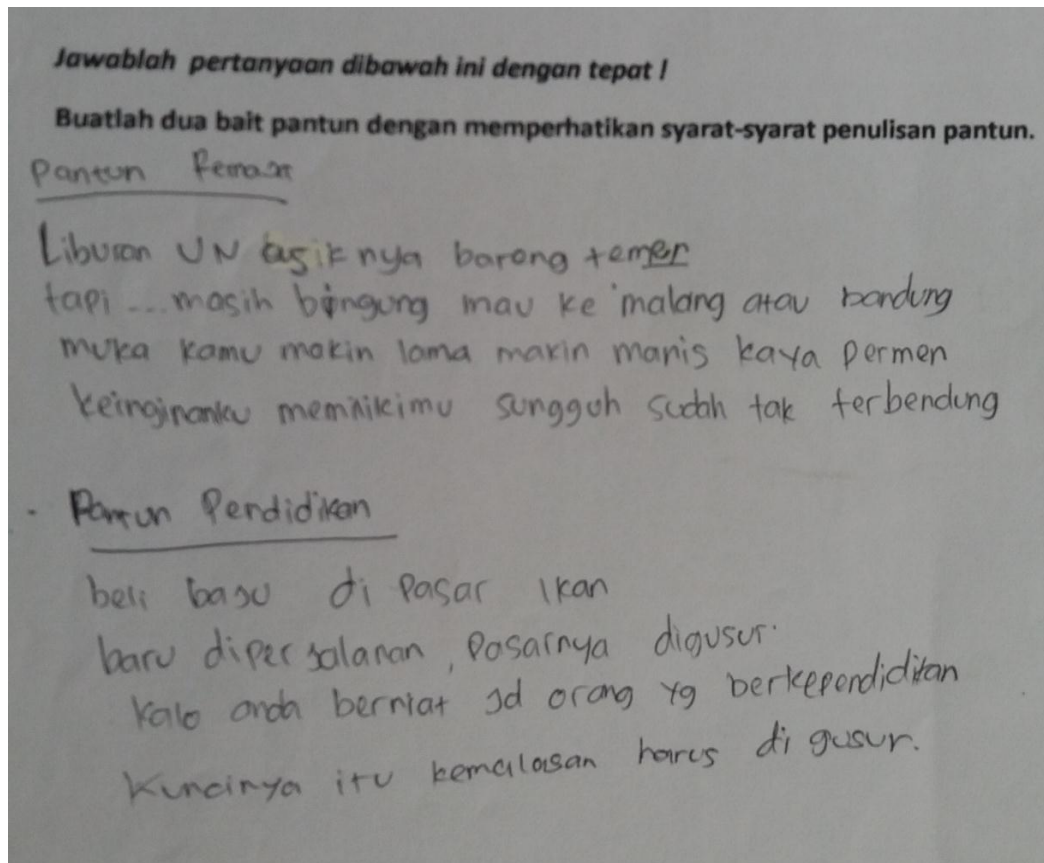 Jawablah pertanyaan dibawah ini dengan tepat !
Buatlah dua bait pantun dengan memperhatikan syarat-syarat penulisan pantun.
Pantun
Liburan UN asiknya bareng temen
tapi ... masih bingung mau ke malang atau bandung
muka kamu makin lama makin manis kaya permen
keinginanku memilikimu sungguh sudah tak terbendung
- Pantun Pendidikan
beli baju di Pasar Ikan
baru diperjalanan, Pasarnya digusur.
kalo anda berniat jd orang yg berkependidikan
Kuncinya itu kemalasan harus di gusur.